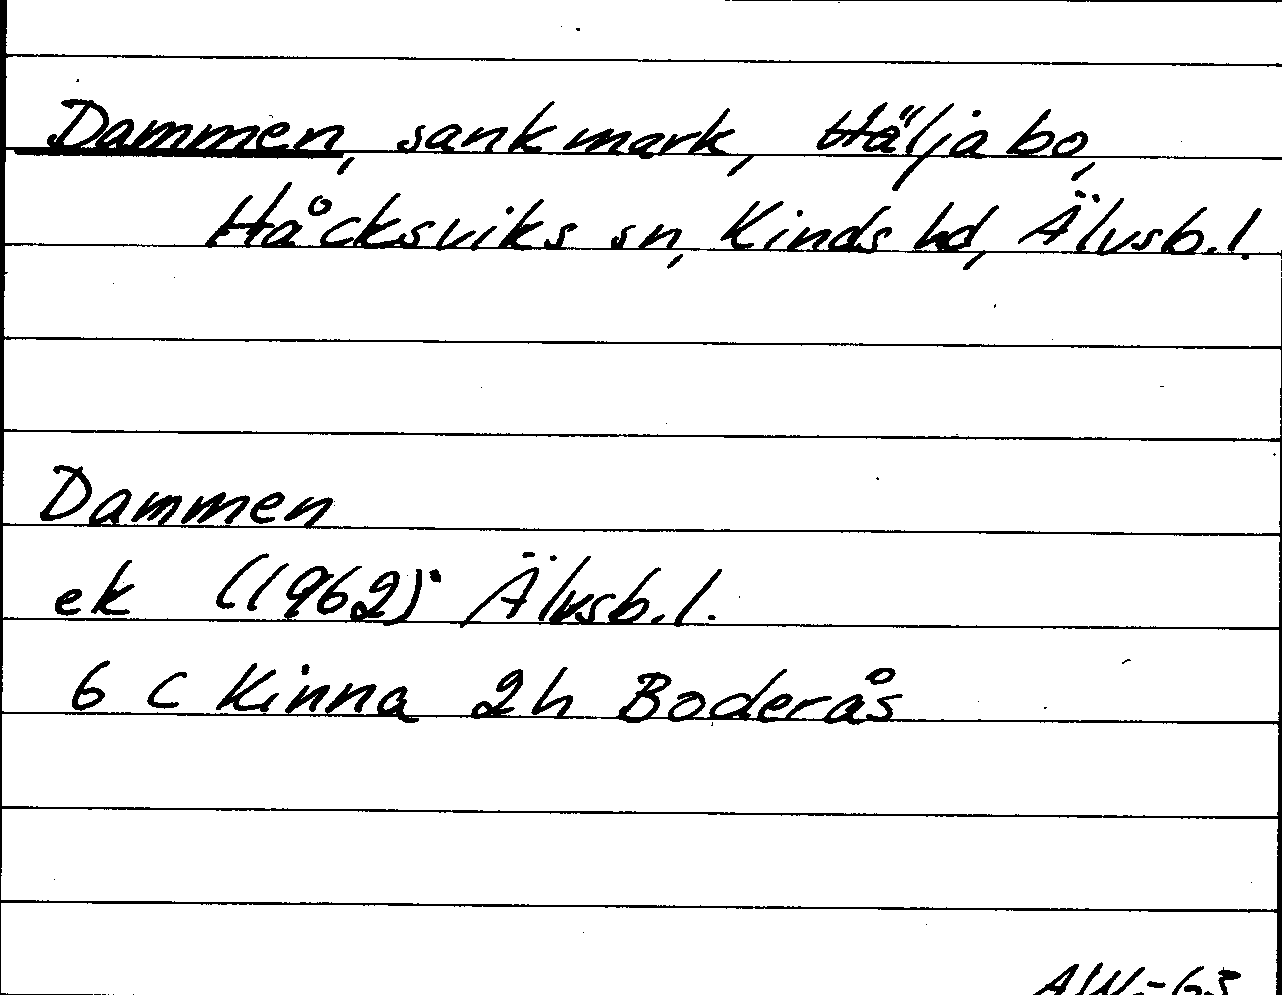 Dammen, sankmark, Häljabo,
Håcksviks sn, Kinds hd, Älvsb.l.
Dammen
ek (1962) Älvsb.l.
6 C Kinna 2h Boderås
AW-63